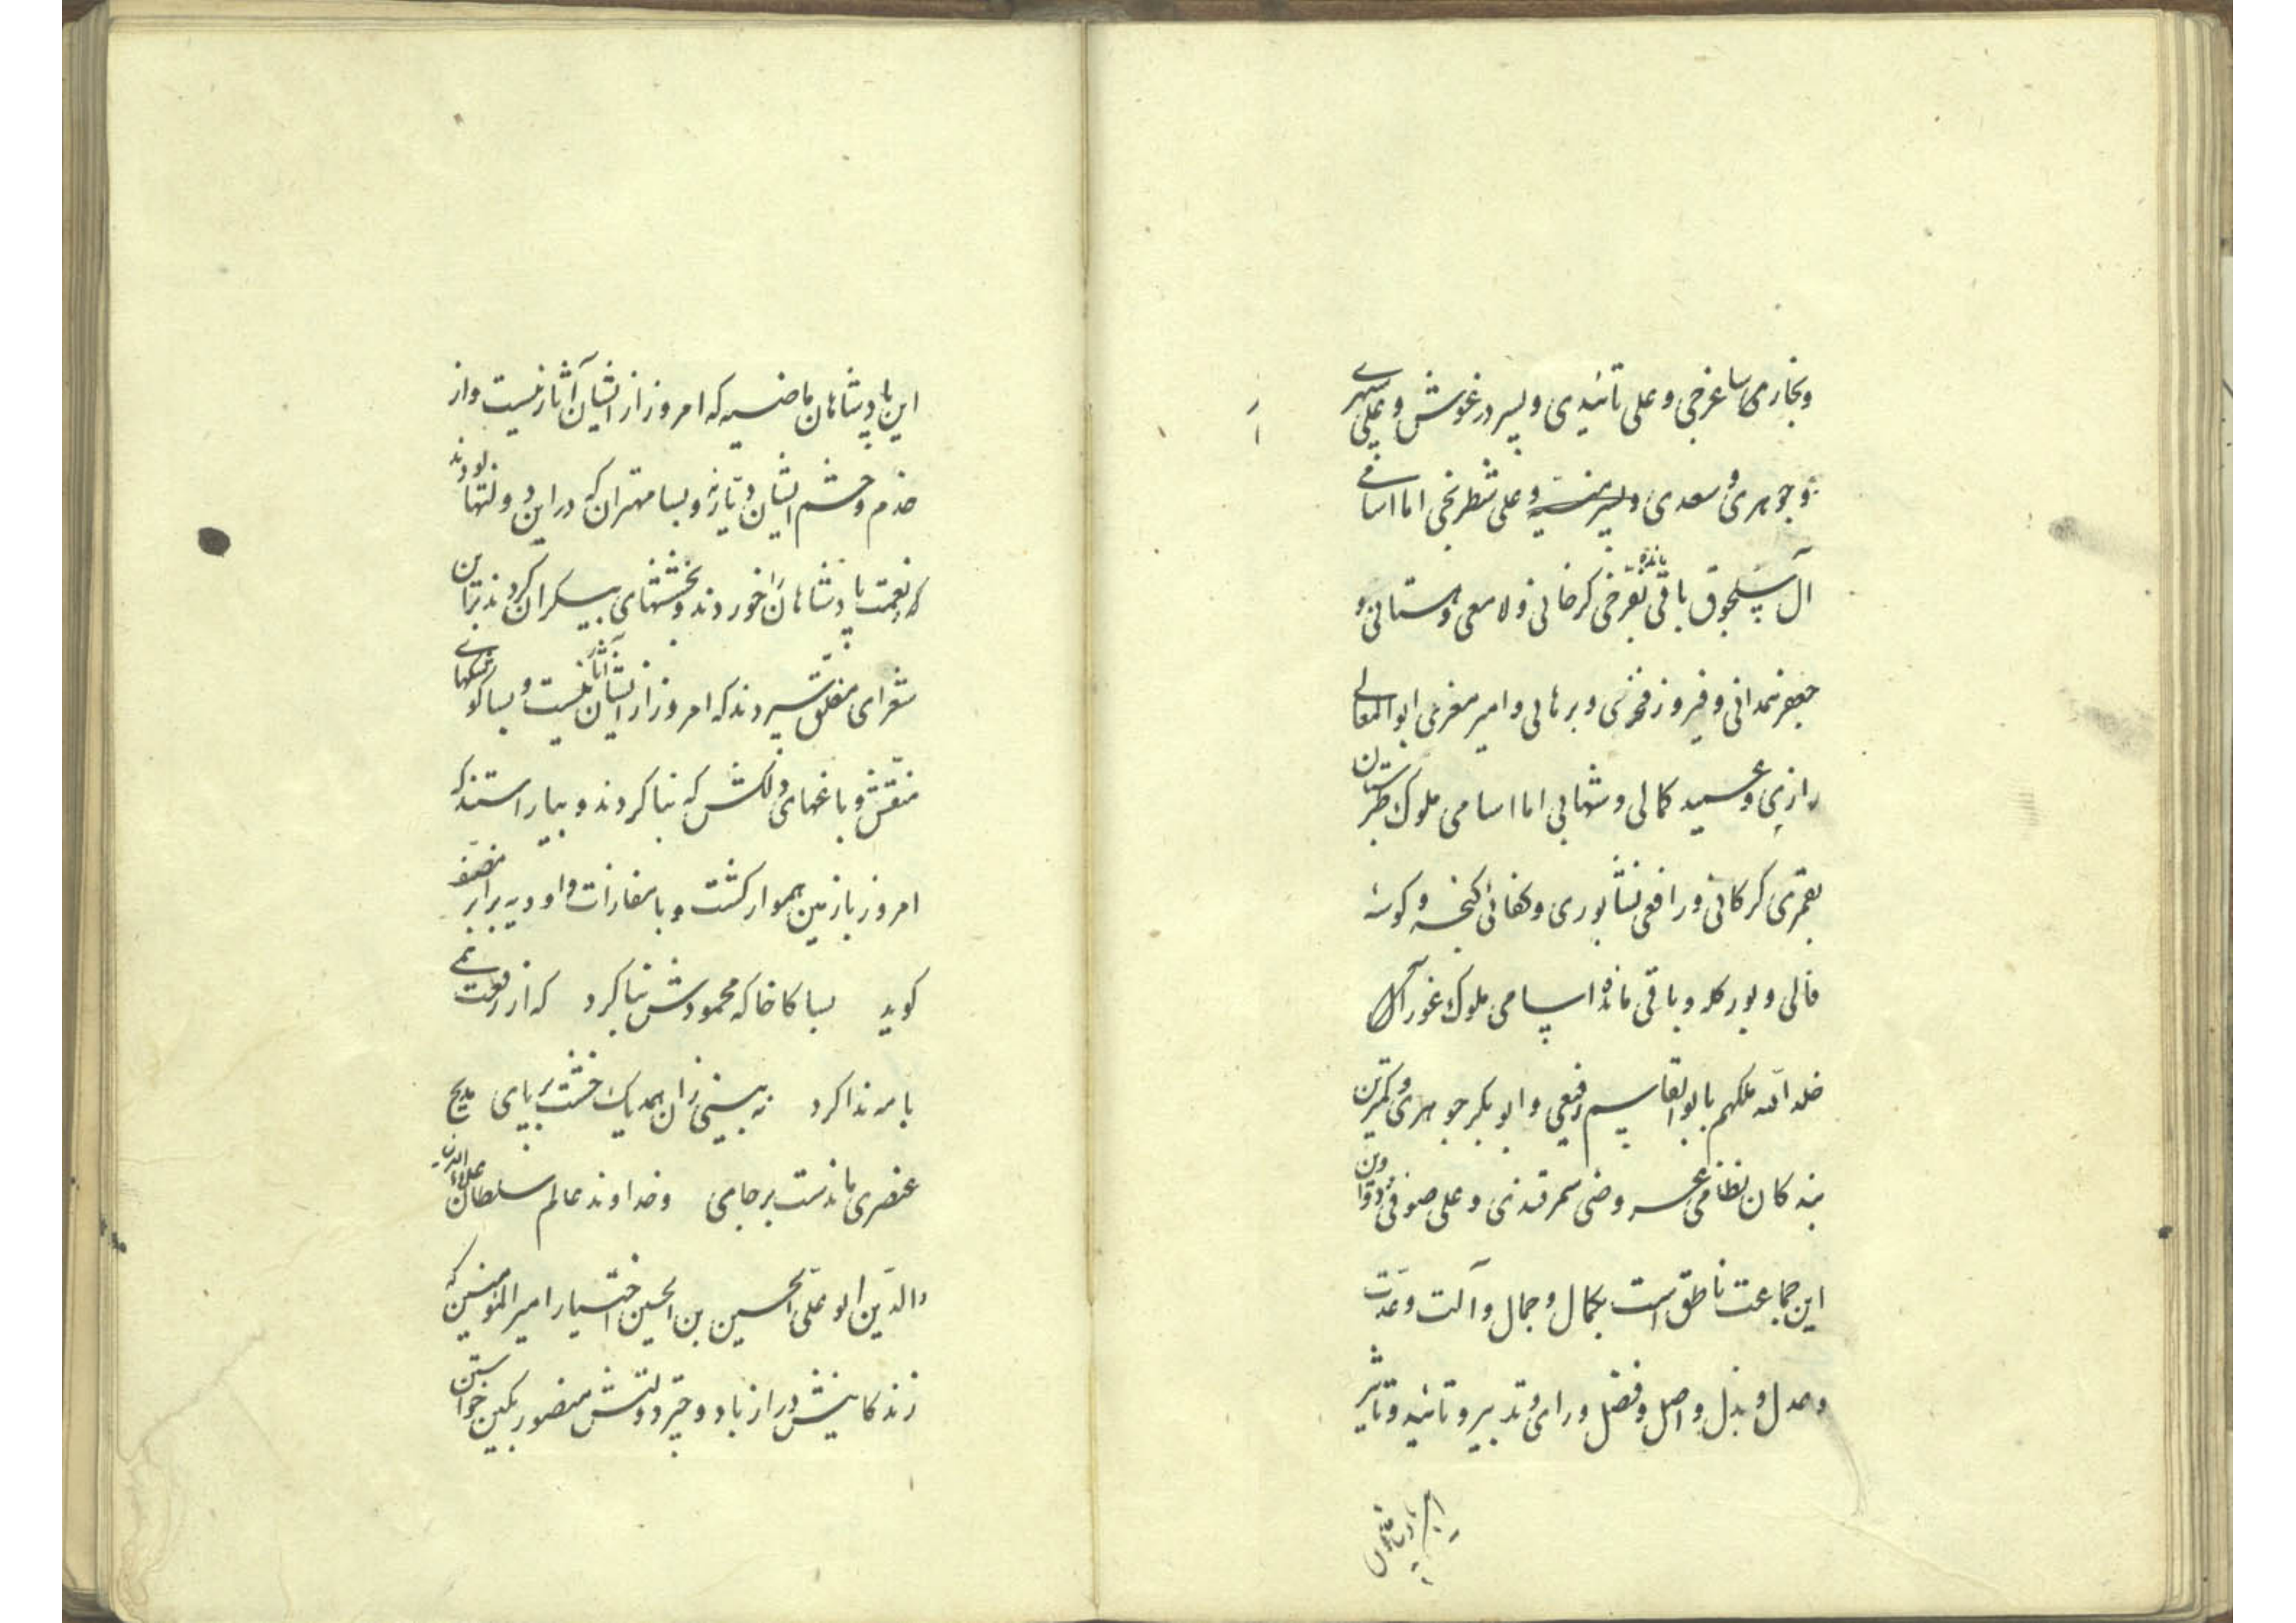 وبخاری ساغرجی و علی تائیدی و پسر درغوش و علی سپهری
و جوهری و سعدی و پسر تیشه و علی شطرنجی اما اسامی
آل سلجوق باقی مانده بفرخی کرخانی و لامعی دهستانی و
جعفر همدانی و فیروز فخری و برهانی و امیر معزی ابوالمعالی
رازی و عمید کمالی و شهابی اما اسامی ملوک طبرستان
بقمری کرکانی و رافعی نشابوری و کفائی کنجه و کوسهٔ
فالی و بور کله و باقی مانده اسامی ملوک غور آل
خلد الله ملکهم بابو القاسم رفیعی و ابو بکر جوهری و کمترین
بندکان نظامی عروضی سمرقندی و علی صوفی و دواوین
این جماعت ناطق است بکمال و جمال و آلت و عدّت
و عدل و بذل و اصل و فضل و رای و تدبیر و تائید و تاثیر
این پادشاهان
این پادشاهان ماضیه که امروز از ایشان آثار نیست و از
خدم و حشم ایشان دیّار نه و بسا مهتران که در این دولتها بودند
که نعمت پادشاهان را خوردند و بخششهای بیکران کردند بر این
شعرای مفلق سپردند که امروز از ایشان آثار نیست و بسا کوشکهای
منقّش و باغهای دلکش که بنا کردند و بیاراستند که
امروز با زمین هموار کشت و با مفازات و اودیه برابر مصنّف
کوید بسا کاخا که محمودش بنا کرد که از رفعت همی
با مه ندا کرد نه بینی زان همه یک خشت بر پای مدیح
عنصری ماندست بر جای و خداوند عالم سلطان علاء الدنیا
والدّین ابو علی الحسین بن الحسین اختیار امیر المومنین که
زندکانیش دراز باد و چتر دولتش منصور بکین خواستن